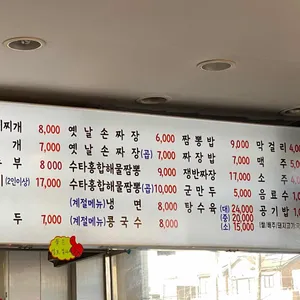 찌개 8,000
개 7,000
부 8,000
(2인이상) 17,000
두 7,000
옛날손짜장 6,000
옛날손짜장(곱) 7,000
수타홍합해물짬뽕 9,000
수타홍합해물짬뽕(곱) 10,000
(계절메뉴) 냉면 8,000
(계절메뉴) 콩국수 8,000
짬뽕밥 9,000
짜장밥 7,000
쟁반짜장 17,000
군만두 5,000
탕수육 (대) 24,000
(중) 20,000
(소) 15,000
막걸리 4,0
맥주
소주
음료수
공기밥